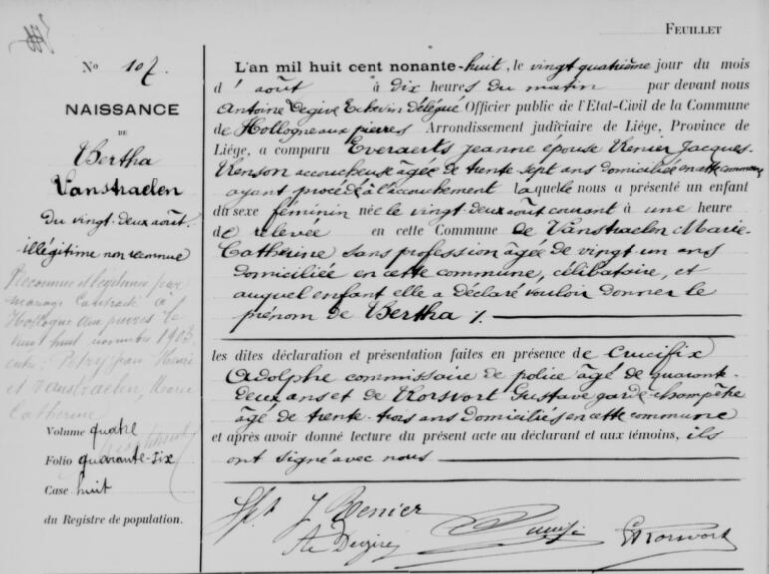 FEUILLET
N° 107
NAISSANCE
DE
Bertha
Vanstraelen
du vingt-deux août.
illégitime non reconnue
Reconnue et légitimée par
mariage contracté à
Hollogne aux pierres le
vingt huit novembre 1903
entre Petry Jean
et Vanstraelen, Marie
Catherine
Volume quatre
Folio quarante-six
Case huit
du Registre de population.
L'an mil huit cent nonante-huit, le vingt quatrième jour du mois
d' août à dix heures du matin par devant nous
Antoine Degive Echevin délégué Officier public de l'Etat-Civil de la Commune
de Hollogne aux pierres Arrondissement judiciaire de Liége, Province de
Liége, a comparu Everaerts Jeanne épouse Renier Jacques
Renson accoucheuse âgée de trente-sept ans domiciliée en cette commune
ayant procédé à l'accouchement laquelle nous a présenté un enfant
du sexe féminin née le vingt-deux août courant à une heure
de relevée en cette Commune de Vanstraelen Marie-
Catherine sans profession âgée de vingt un ans
domiciliée en cette commune, célibataire, et
auquel enfant elle a déclaré vouloir donner le
prénom de Bertha ./.
les dites déclaration et présentation faites en présence de Crucifix
Adolphe commissaire de police âgé de quarante-
deux ans et de Korsvort Gustave garde-champêtre
âgé de trente-trois ans domiciliés en cette commune
et après avoir donné lecture du présent acte au déclarant et aux témoins, ils
ont signé avec nous
J Renier
A Degive
G Korsvort